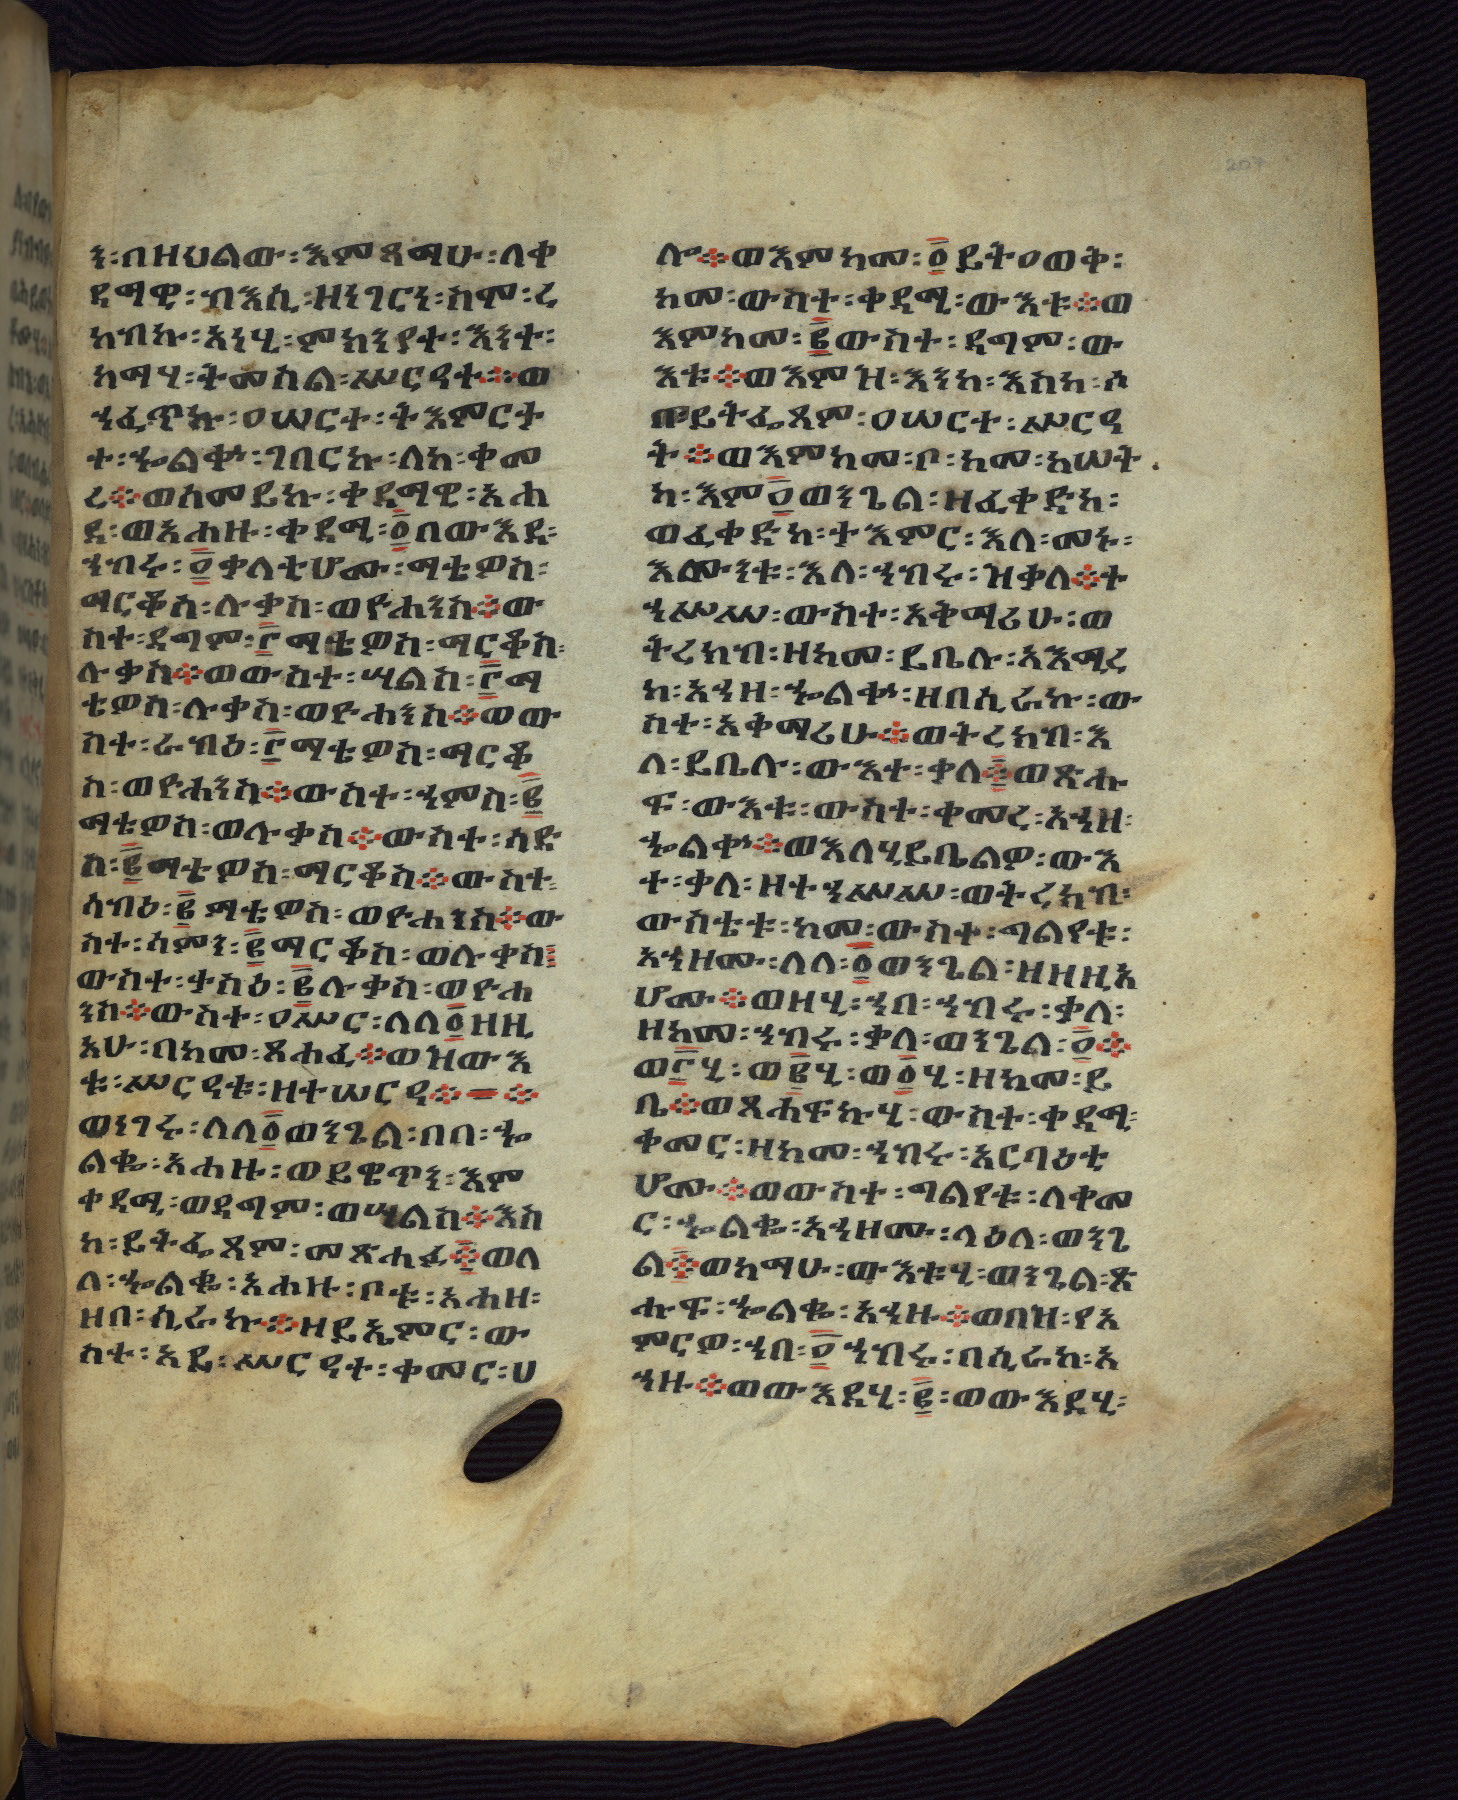 ኒ፡በዘህልው፡እምጻማሁ፡ለቀ
ዳማዊ፡ብእሲ፡ዘነገርነ፡ስም፡ረ
ከብኩ፡አነሂ፡ምክንያተ፡እንተ፡
ከማሃ፡ትመስል፡ሥርዓተ፨ወ
ኀፈጥኩ፡ዐሠርተ፡ትእምርት
ተ፡ኍልቍ፡ገበርኩ፡ለከ፡ቀመ
ረ፨ወሰመይኩ፡ቀዳማዊ፡አሐ
ደ፡ወአሐዙ፡ቀዳሚ፡፬በውእደ፡
ኀብሩ፡፬ቃላቲሆሙ፡ማቴዎስ፡
ማርቆስ፡ሉቃስ፡ወዮሐንስ፨ው
ስተ፡ዳግም፡፫ማቴዎስ፡ማርቆስ፡
ሉቃስ፨ወውስተ፡ሣልስ፡፫ማ
ቴዎስ፡ሉቃስ፡ወዮሐንስ፨ወው
ስተ፡ራብዕ፡፫ማቴዎስ፡ማርቆ
ስ፡ወዮሐንስ፨ውስተ፡ኀምስ፡፪
ማቴዎስ፡ወሉቃስ፨ውስተ፡ሳድ
ስ፡፪ማቴዎስ፡ማርቆስ፨ውስተ፡
ሳብዕ፡፪ማቴዎስ፡ወዮሐንስ፨ው
ስተ፡ሳምን፡፪ማርቆስ፡ወሉቃስ፡
ውስተ፡ተስዕ፡፪ሉቃስ፡ወዮሐ
ንስ፨ውስተ፡ዐሥር፡ለለ፩ዘዚ
አሁ፡በከመ፡ጸሐፈ፨ወዝውእ
ቱ፡ሥርዓቱ፡ዘተሠርዓ፨
ወነገሩ፡ለለ፩ወንጌል፡በበ፡ኍ
ልቈ፡አሐዙ፡ወይዌጥን፡እም
ቀዳሚ፡ወዳግም፡ወሣልስ፨እስ
ከ፡ይትፌጸም፡መጽሐፈ፨ወለ
ለ፡ኍልቈ፡አሐዙ፡ቦቱ፡አሐዘ፡
ዘበ፡ሲራኩ፨ዘይኤምር፡ው
ስተ፡አይ፡ሥርዓተ፡ቀመር፡ሀ
ሎ፨ወእምከመ፡፩ይትዐወቅ፡
ከመ፡ውስተ፡ቀዳሚ፡ውእቱ፨ወ
እምከመ፡፪ውስተ፡ዳግም፡ው
እቱ፨ወእምዝ፡እንከ፡እስከ፡ሶ
በይትፌጸም፡ዐሠርተ፡ሥርዓ
ት፨ወእምከመ፡ቦ፡ከመ፡ከሠት
ከ፡እም፬ወንጌል፡ዘፈቀድከ፡
ወፈቀድከ፡ተእምር፡እለ፡መኑ፡
እሙንቱ፡እለ፡ኀብሩ፡ዝቃለ፨ት
ኀሥሥ፡ውስተ፡አቅማሪሁ፡ወ
ትረክብ፡ዘከመ፡ይቤሉ፡አእማረ
ከ፡አኀዘ፡ኍልቍ፡ዘበሲራኩ፡ው
ስተ፡አቀማሪሁ፨ወትረክብ፡እ
ለ፡ይቤሉ፡ውእተ፡ቃለ፨ወጽሑ
ፍ፡ውእቱ፡ውስተ፡ቀመረ፡አኀዘ፡
ኍልቍ፨ወእለሂይቤልዎ፡ውእ
ተ፡ቃለ፡ዘተኀሥሥ፡ወትረክብ፡
ውስቴቱ፡ከመ፡ውስተ፡ማልየቱ፡
አኀዘሙ፡ለለ፩ወንጌል፡ዘዘዚአ
ሆሙ፨ወዘሂ፡ኀበ፡ኀብሩ፡ቃለ፡
ዘከመ፡ኀብሩ፡ቃለ፡ወንጌል፡፬፨
ወ፫ሂ፡ወ፪ሂ፡ወ፩ሂ፡ዘከመ፡ይ
ቤ፨ወጸሐፍኩሂ፡ውስተ፡ቀዳሚ፡
ቀመር፡ዘከመ፡ኀብሩ፡አርባዕቲ
ሆሙ፨ወውስተ፡ማልየቱ፡ለቀመ
ር፡ኍልቈ፡አኀዘሙ፡ላዕለ፡ወንጌ
ል፨ወከማሁ፡ውእቱሂ፡ወንጌል፡ጽ
ሑፍ፡ኍልቈ፡አኀዙ፨ወበዝ፡የአ
ምርዎ፡ኀበ፡፬ኀብሩ፡በሲራከ፡አ
ኀዙ፨ወውእደሂ፡፪፡ወውእደሂ፡